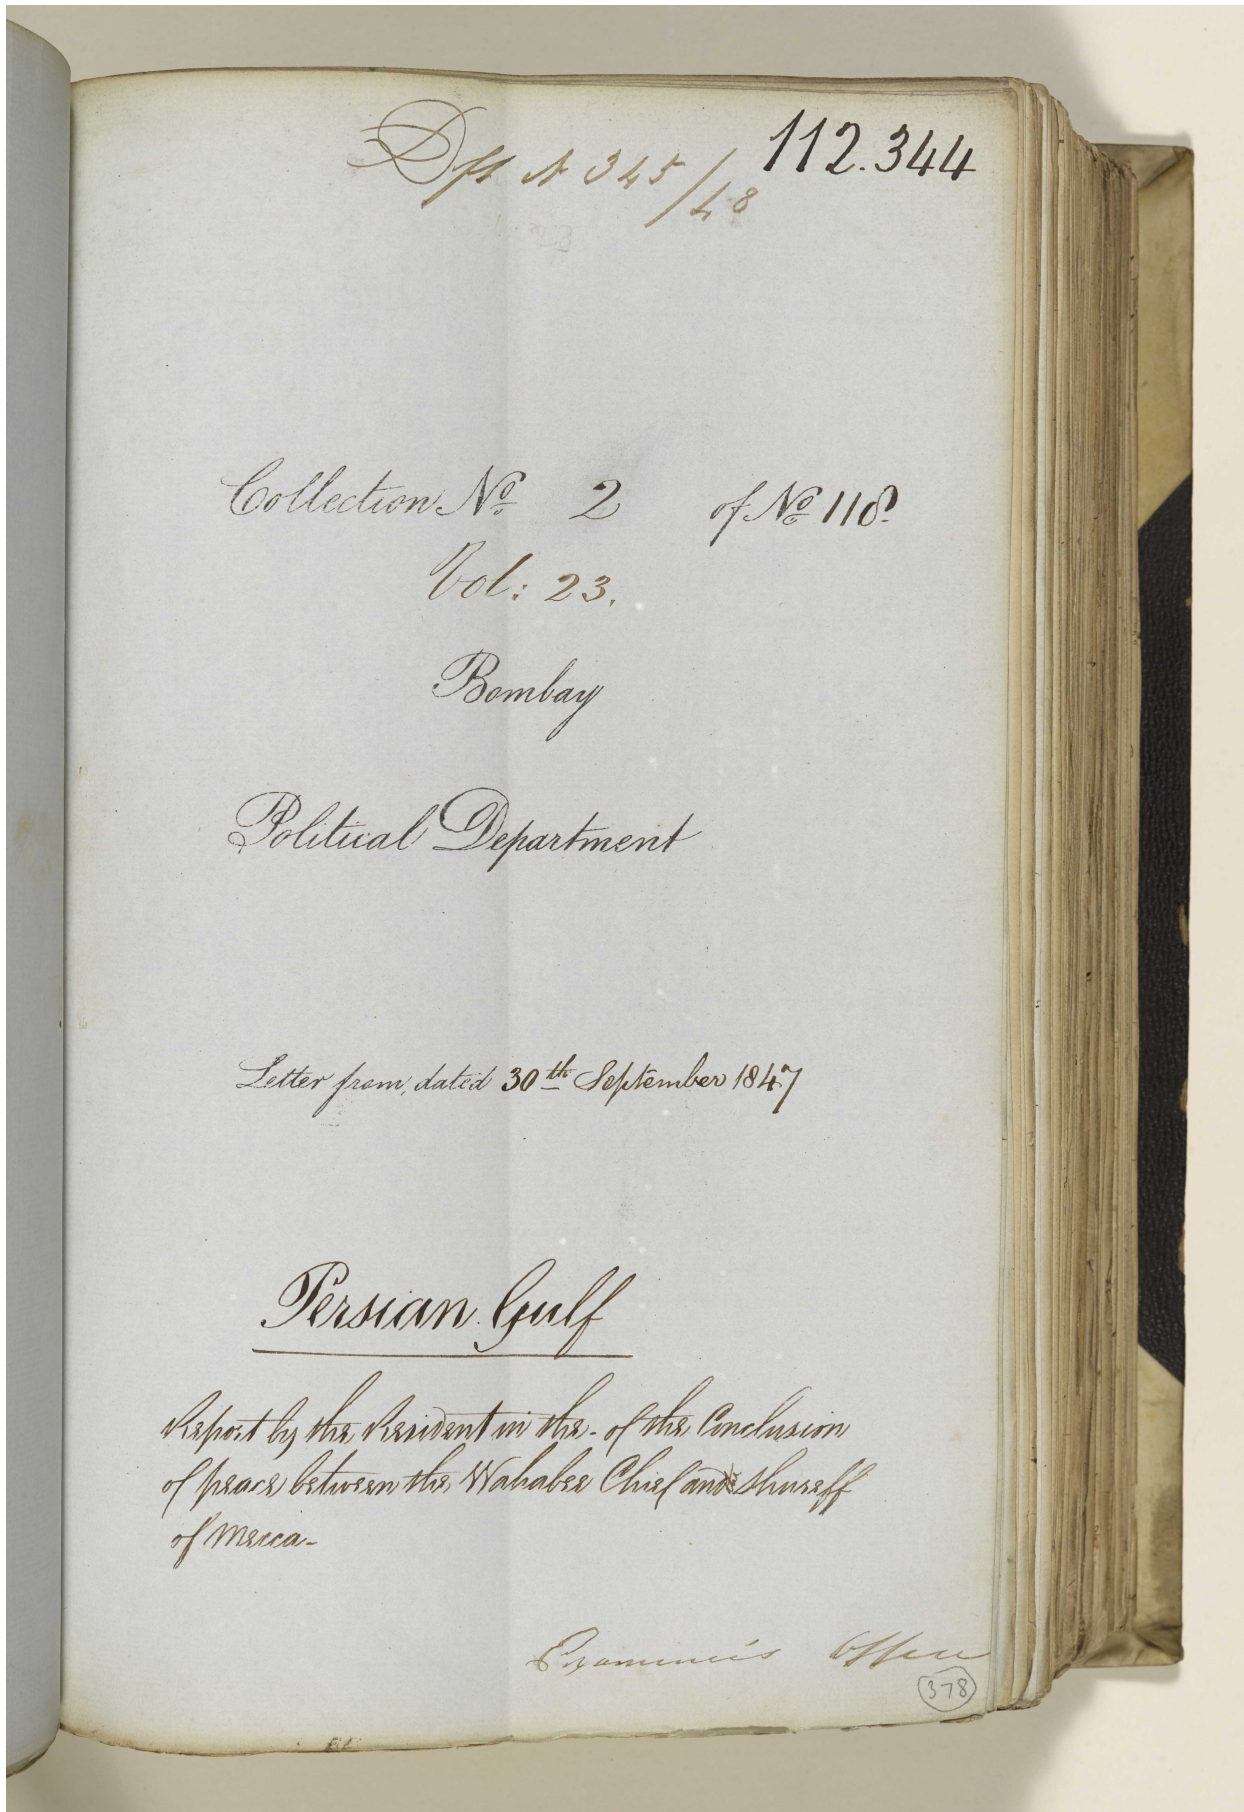 112.344
Dft N 345/48
Collection No 2 of No 118.
Vol: 23.
Bombay
Political Department
Letter from, dated 30th September 1847
Persian Gulf
Report by the Resident in the - of the Conclusion
of peace between the Wahabee Chief and Shureeff
of Mecca -
Examiner's Office
378